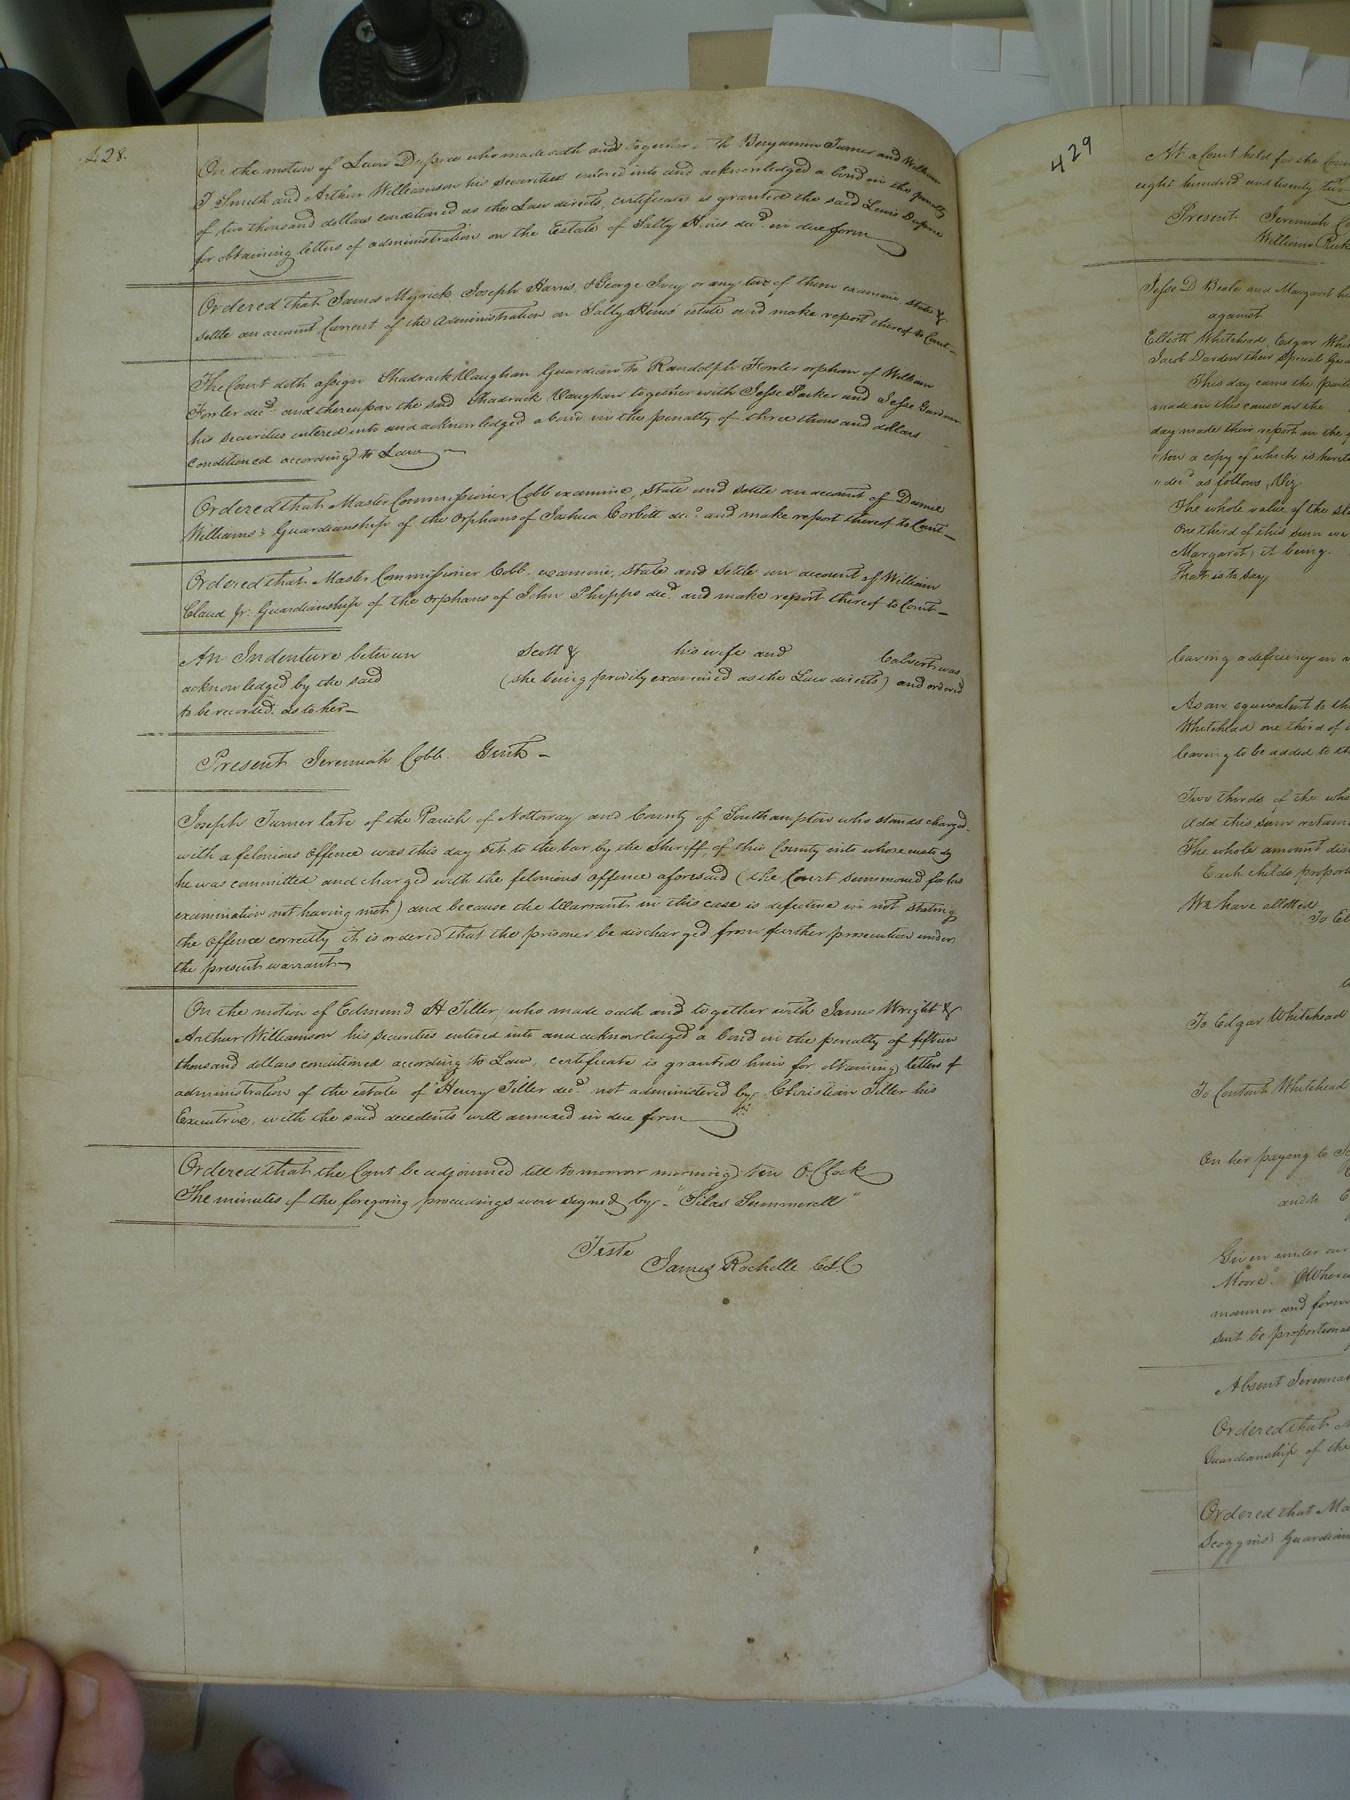 428.
On the motion of Lewis Dupree who made oath and together with Benjamin Turner and William
T Smith and Arthur Williamson his securities entered into and acknowledged a bond in the penalty
of two thousand dollars conditioned as the Law directs, certificate is granted the said Lewis Dupree
for obtaining letters of administration on the Estate of Sally Hines decd. in due form
Ordered that James Myrick, Joseph Harris, & George Ivey or any two of them examine, state &
settle an account Current of the administration on Sally Hines' estate and make report thereof to Court
The Court doth assign Shadrack Vaughan Guardian to Randolph Fowler orphan of William
Fowler decd. and thereupon the said Shadrack Vaughan together with Jesse Parker and Jesse Gardner
his securities entered into and acknowledged a bond in the penalty of three thousand dollars
conditioned according to Law
Ordered that Master Commissioner Cobb examine, state and settle an account of Daniel
Williams's Guardianship of the Orphans of Joshua Corbitt decd. and make report thereof to Court
Ordered that Master Commissioner Cobb examine, state and settle an account of William
Claud Jr. Guardianship of the orphans of John Phipps decd. and make report thereof to Court
An Indenture between Scott & his wife and Calvert was
acknowledged by the said (she being privily examined as the Law directs) and ordered
to be recorded as to her
Present Jeremiah Cobb. Gent
Joseph Turner late of the Parish of Nottoway and County of Southampton who stands charged
with a felonious offence was this day set to the bar by the Sheriff of this County into whose custody
he was committed and charged with the felonious offence aforesaid (the Court summoned for his
examination not having met) and because the Warrant in this case is defective in not stating
the offence correctly it is ordered that the prisoner be discharged from further prosecution under
the present warrant
On the motion of Edmund H Tiller, who made oath and together with James Wright &
Arthur Williamson his securities entered into and acknowledged a bond in the penalty of fifteen
thousand dollars conditioned according to Law, certificate is granted him for obtaining letters of
administration of the estate of Henry Tiller decd. not administered by Christian Tiller his
Executrix, with the said decedents will annexed in due form
Ordered that the Court be adjourned till tomorrow morning ten OClock
The minutes of the foregoing proceedings were signed by "Silas Summerell"
Teste
James Rochelle C.S.C
429
At a Court held for the
eight hundred and twenty two
Present Jeremiah
William
Jesse D Beale and Margaret
against
Elliott Whitehead, Edgar
Jacob Darden their Special
This day came the
made in this cause on the
day made their report in the
a copy of which is
"decd. as follows, Viz
The whole value of the
One third of this sum
Margaret, it being.
That is to say
leaving a deficiency in
As an equivalent to
Whitehead one third of
leaving to be added to
Two thirds of the
Add this sum
The whole amount
Each childs
We have allotted
To
To Edgar Whitehead
To Contents Whitehead
On her paying to
and to
Given under our
Moore."
manner and form
be
Absent Jeremiah
Ordered that
Guardianship of the
Ordered that
Scoggins's Guardian